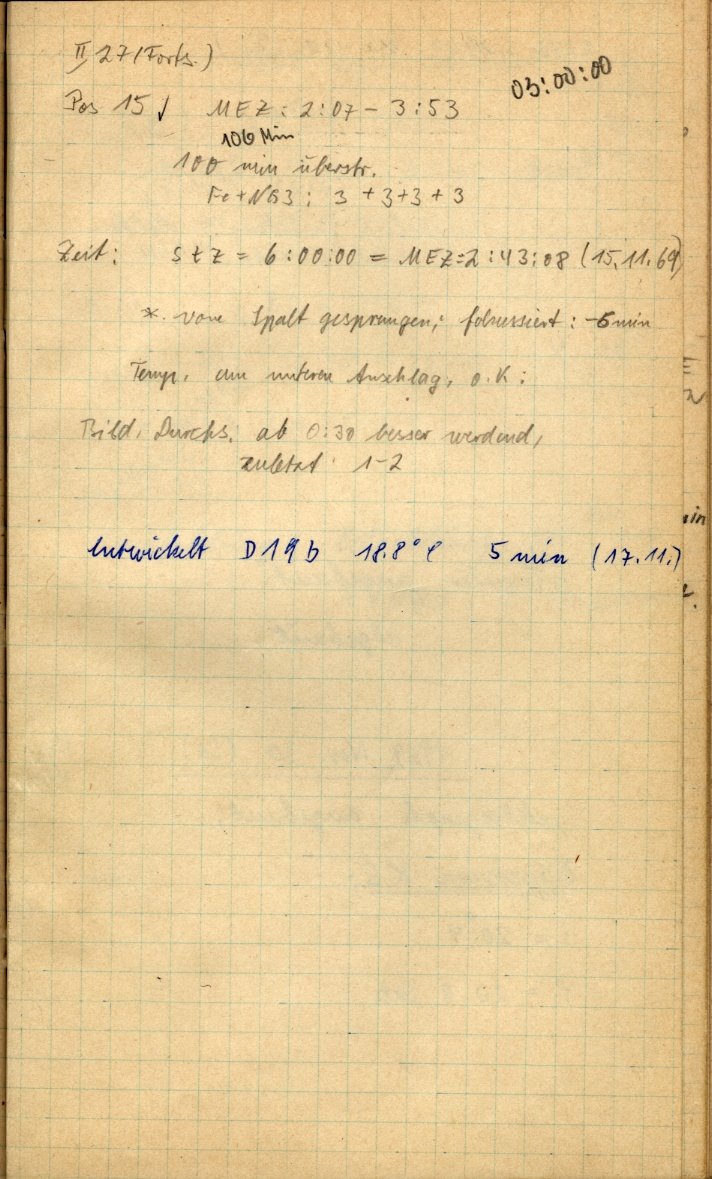 II, 27 (Forts.)
03:00:00
Pos 15 MEZ: 2:07 - 3:53
106 Min
100 min überstr.
Fe+NG3: 3+3+3+3
Zeit: StZ = 6:00:00 = MEZ=2:43:08 (15.11.69)
*. vom Spalt gesprungen; fokussiert: -5min
Temp. am unteren Anschlag, o.K.
Bild, Durchs. ab 0:30 besser werdend,
zuletzt 1-2
entwickelt D19b 18.8°C 5 min (17.11.)